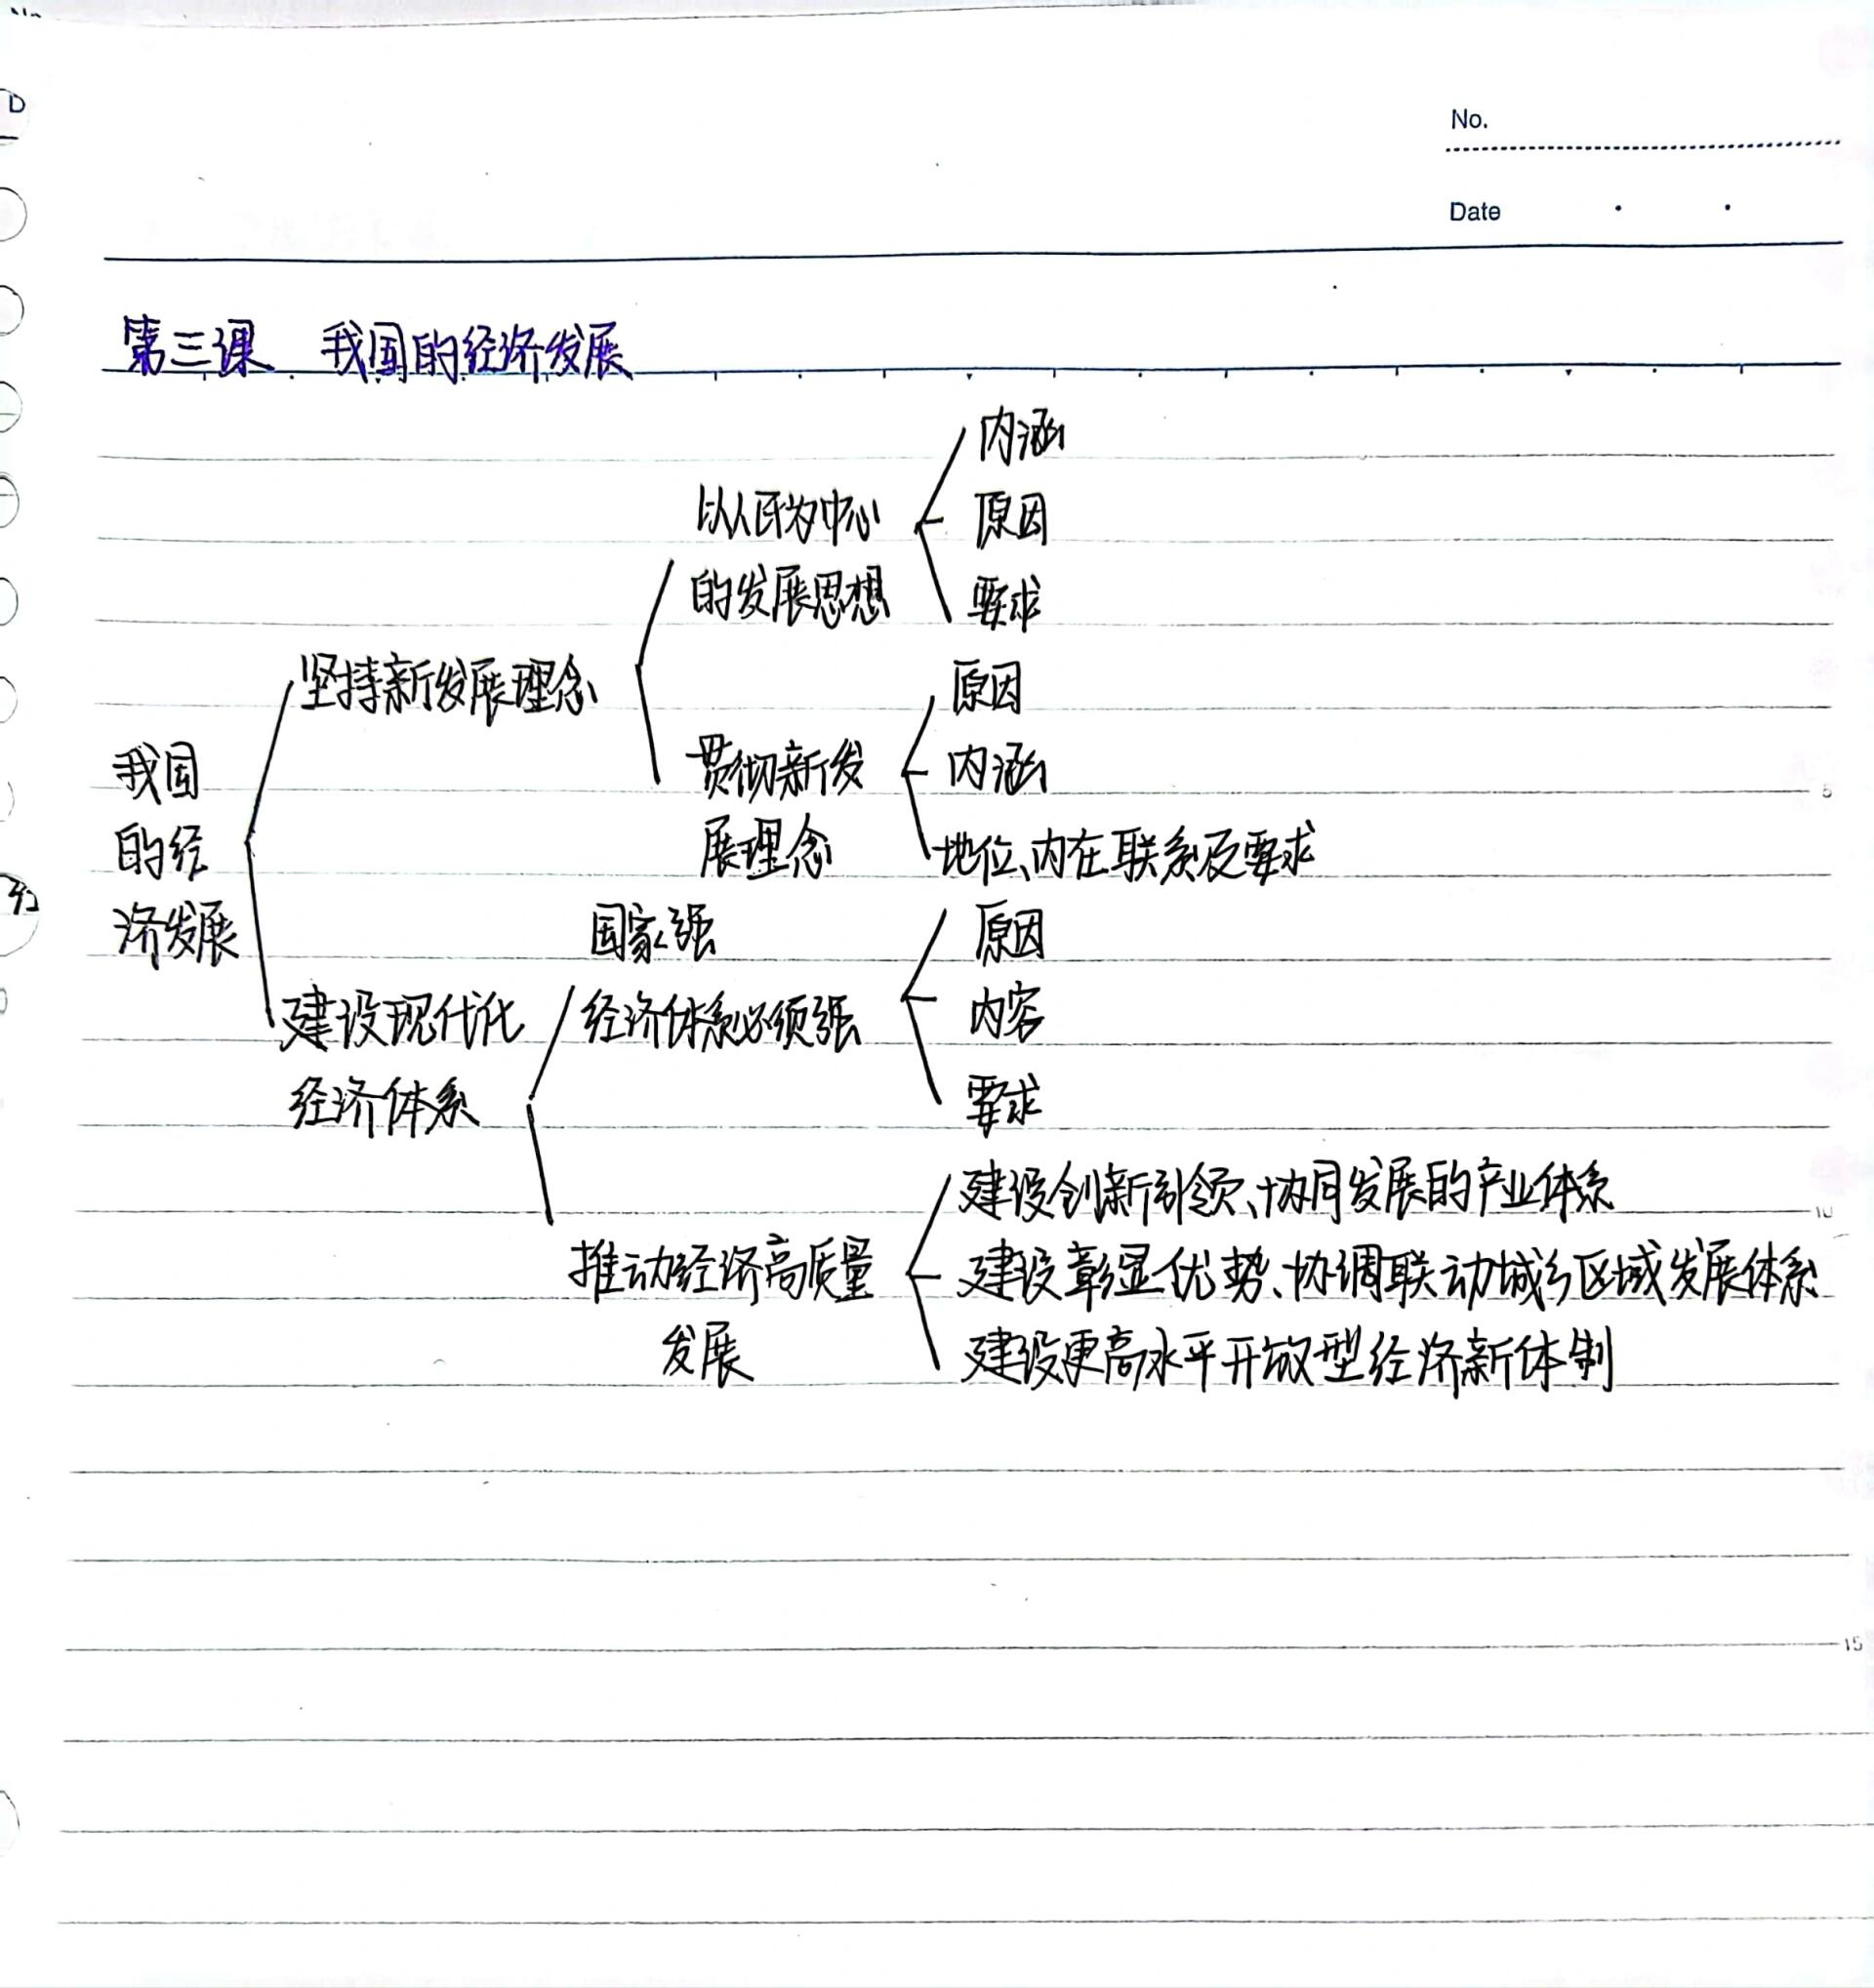 No.
Date
第三课 我国的经济发展
内涵
以人民为中心
原因
的发展思想
要求
坚持新发展理念
原因
我国
贯彻新发
内涵
的经
展理念
地位、内在联系及要求
济发展
国家强
原因
建设现代化
经济体系必须强
内容
经济体系
要求
建设创新引领、协同发展的产业体系
推动经济高质量
建设彰显优势、协调联动城乡区域发展体系
发展
建设更高水平开放型经济新体制
5
10
15